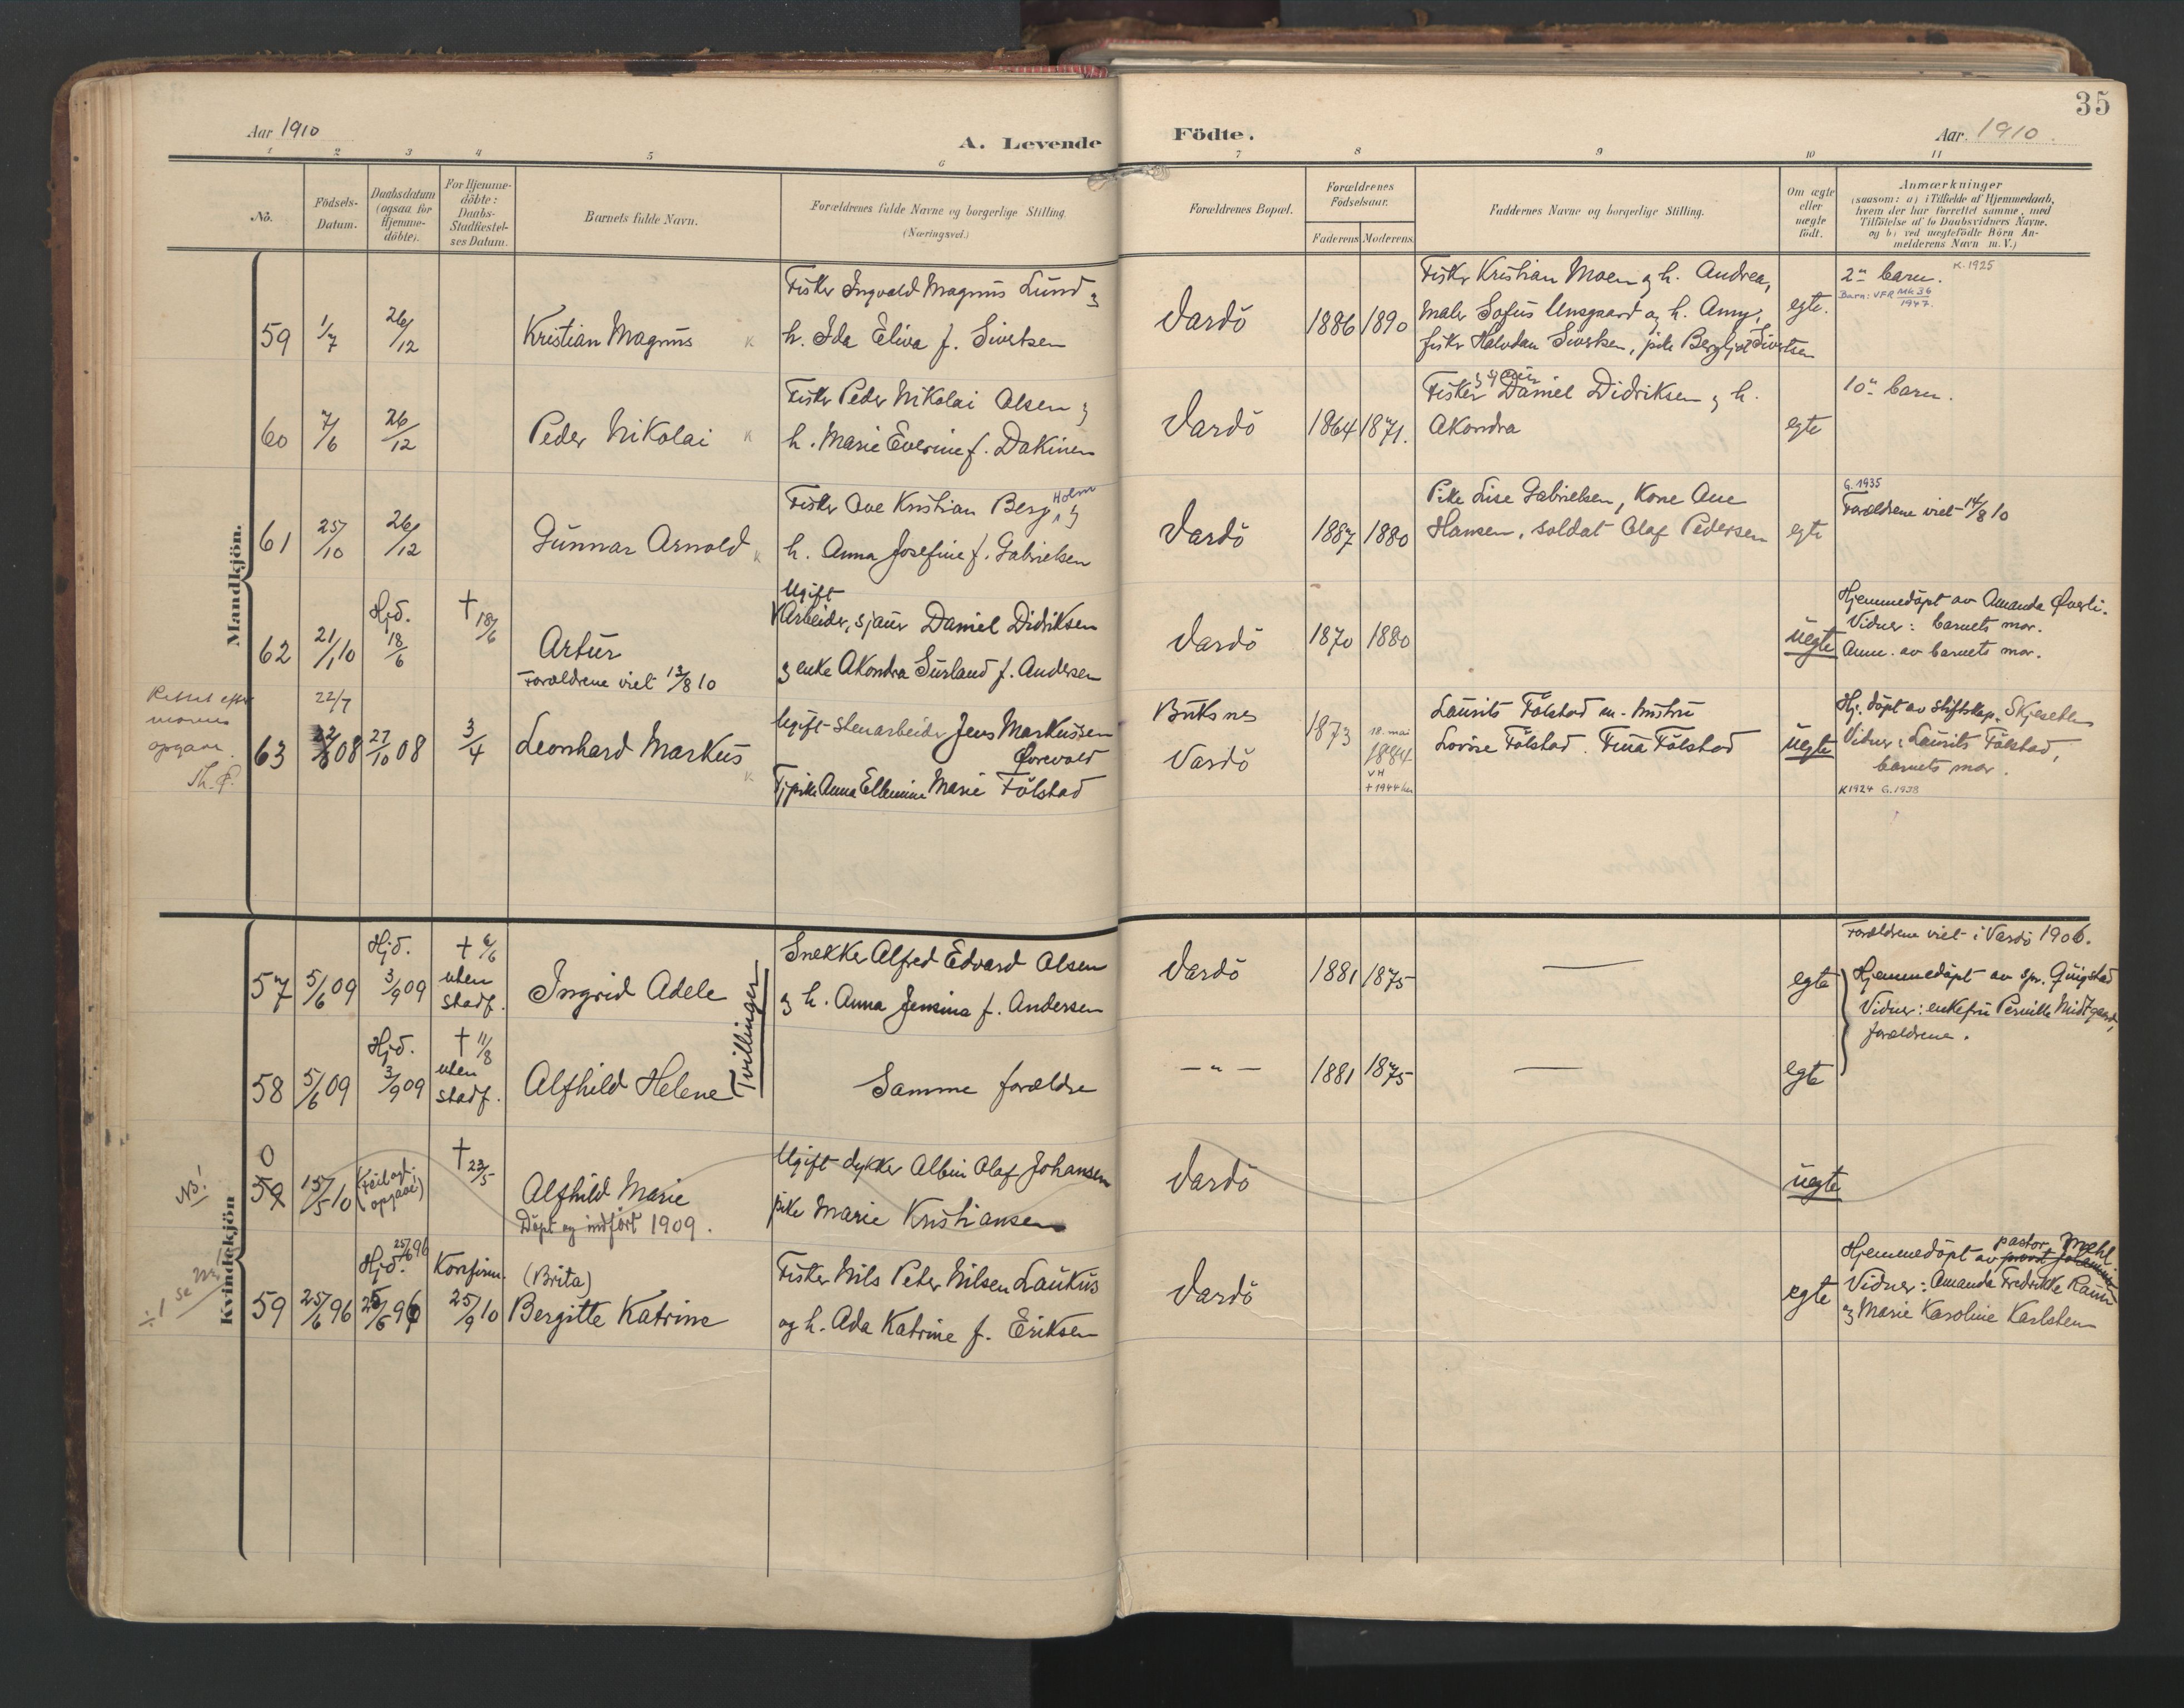 35
Aar 1910
A. Levende Födte.
Aar. 1910.
1 2 3 4 5 6 7 8 9 10 11
No.
Födsels-
Datum.
Daabsdatum
(ogsaa for
Hjemme-
döbte).
For Hjemme-
döbte:
Daabs-
Stadfæstel-
ses Datum.
Barnets fulde Navn.
Forældrenes fulde Navne og borgerlige Stilling.
(Næringsvei.)
Forældrenes Bopæl.
Forældrenes
Födselsaar.
Faderens Moderens.
Faddernes Navne og borgerlige Stilling.
Om ægte
eller
uægte
födt.
Anmærkninger
(saasom: a) i Tilfælde af Hjemmedaab,
hvem der har forrettet samme, med
Tilföielse af to Daabsvidners Navne.
og b) ved uægtefödte Börn An-
melderens Navn m. V.)
Mandkjön.
59 1/7 26/12 Kristian Magnus K
Fisker Ingvald Magnus Lund og
h. Ida Eliva f. Sivertsen
Vardö 1886 1890
Fisker Kristian Moen og h. Andrea,
maler Sofus Unsgaard og h. Anny,
fisker Halvdan Sivertsen, pike Bergljot Sivertsen
egte.
2n barn. K. 1925
Barn: VFR Mk 36
1947.
60 7/6 26/12 Peder Nikolai K
Fisker Peder Nikolai Olsen og
h. Marie Everine f. Dakinen
Vardö 1864 1871.
Fisker Daniel Didriksen og h.
Akondra
egte
10n barn.
61 25/10 26/12 Gunnar Arnold K
Fisker Ove Kristian Berg Holm og
h. Anna Josefine f. Gabrielsen
Vardö 1887 1880
Pike Lise Gabrielsen, Kone Ane
Hansen, soldat Olaf Pedersen
egte
G. 1935
Forældrene viet 14/8 10
62 21/1 10 Hjd. 18/6 † 18/6 Artur
Forældrene viet 13/8 10
Ugift
Arbeider, sjauer Daniel Didriksen
og enke Akondra Surland f. Andersen
Vardö 1870 1880
uegte
Hjemmedöpt av Amanda Øverli.
Vidner: barnets mor.
Anm. av barnets mor.
Rettet efter
morens
opgave.
Th. P.
22/7
63 08 27/10 08 3/4 Leonhard Markus K
Ugift stenarbeider Jens Markussen
Ørevold
Tj.pike Anna Ellemine Marie Fölstad
Buksnes
Vardö
1873
18. mai
1884
VH
† 1944 her
Laurits Fölstad m. hustru
Lovise Fölstad. Tina Fölstad
uegte
Hj. döpt av stiftskap. Skjeseth
Vidner: Laurits Fölstad,
barnets mor.
K 1924 G. 1938
Kvindekjön
57 5/6 09 Hjd. 3/9 09 † 6/6 uten stadf. Ingrid Adele
Tvillinger
Snekker Alfred Edvard Olsen
og h. Anna Jensina f. Andersen
Vardö 1881 1875 — egte
Forældrene viet i Vardö 1906.
Hjemmedöpt av spr. Quigstad
Vidner: enkefru Pernille Midtgaard,
forældrene.
58 5/6 09 Hjd. 3/9 09 † 11/8 uten stadf. Alfhild Helene
Samme forældre
— " — 1881 1875 — egte
NB!
0
59 15/5 10 (Feilagt. opgave!) † 23/5 Alfhild Marie
Döpt og indfört 1909.
Ugift dykker Albin Olaf Johansen
pike Marie Kristiansen
Vardö
uegte
÷1 se
59 25/6 96 Hjd. 25/6 96 Konfirm. 25/9 10
(Brita)
Bergitte Katrine
Fisker Nils Peter Nilsen Laukus
og h. Ada Katrine f. Eriksen
Vardö
egte
pastor Mæhl.
Hjemmedöpt av provst
Vidner: Amanda Fredrikke
og Marie Karoline Karlsten